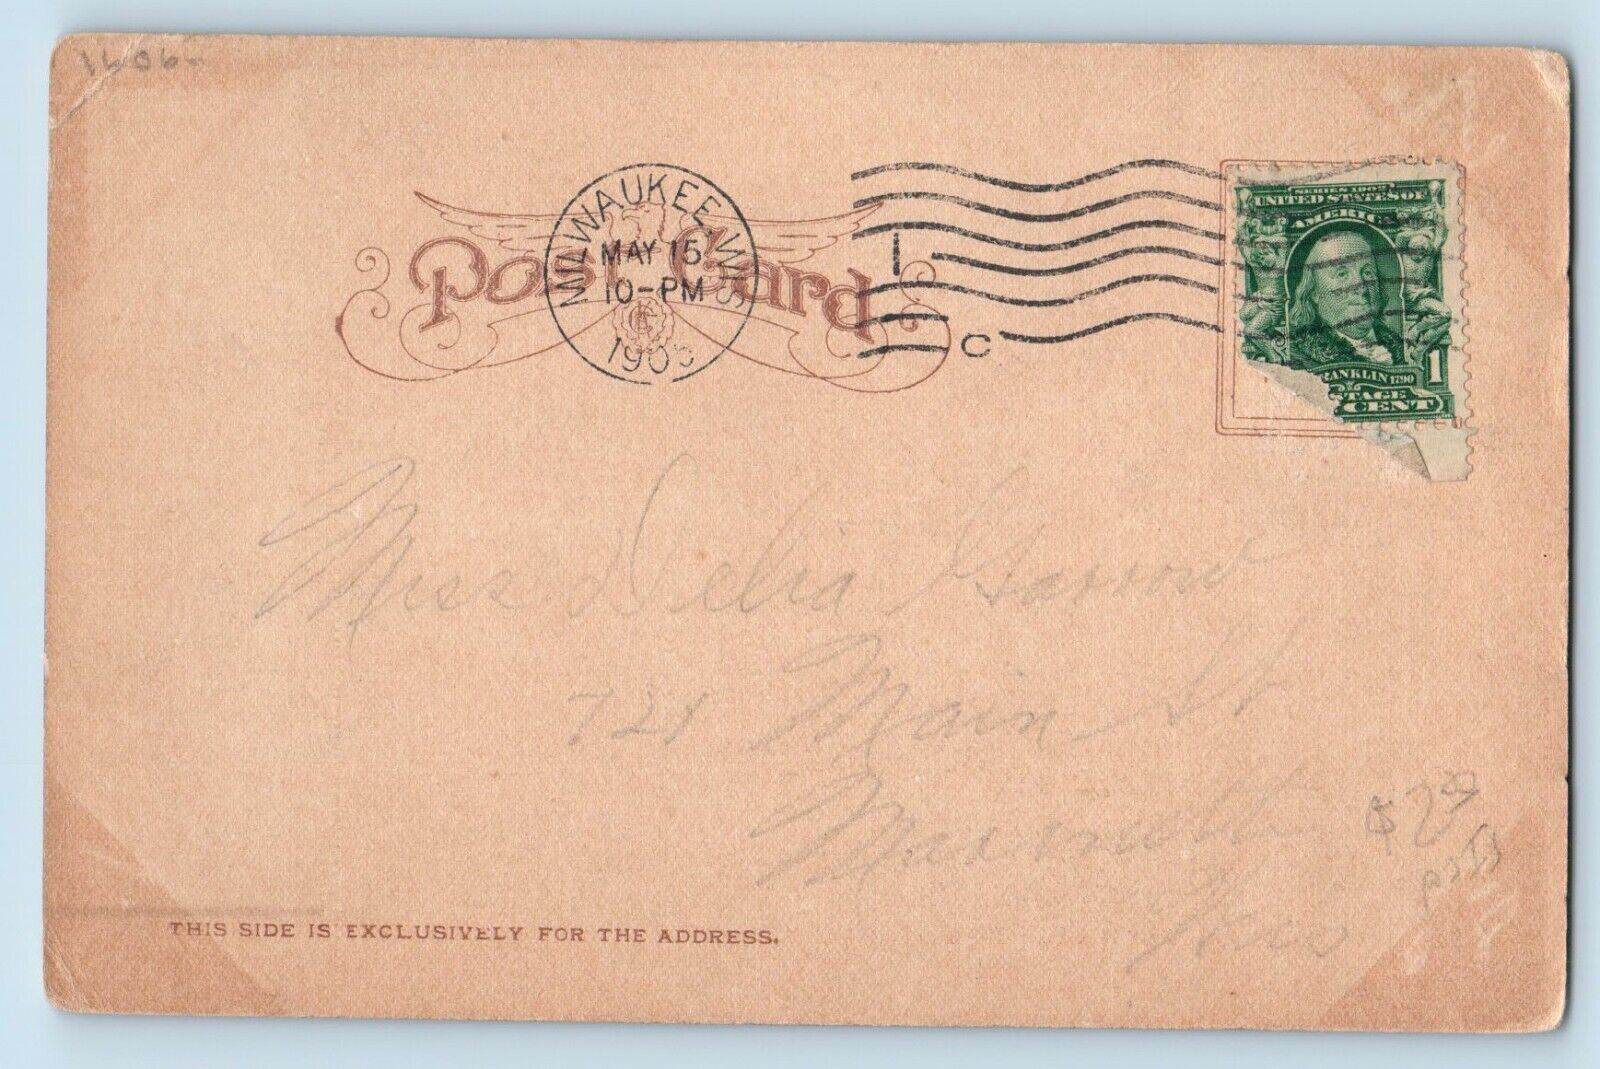 1606-
Post Card
MILWAUKEE, WIS.
MAY 15
10-PM
1905
1
C
SERIES 1902
UNITED STATES OF
AMERICA
FRANKLIN 1790
1
STAGE
CENT
Miss Delia Garrow
721 Main St
Wis
$
THIS SIDE IS EXCLUSIVELY FOR THE ADDRESS.